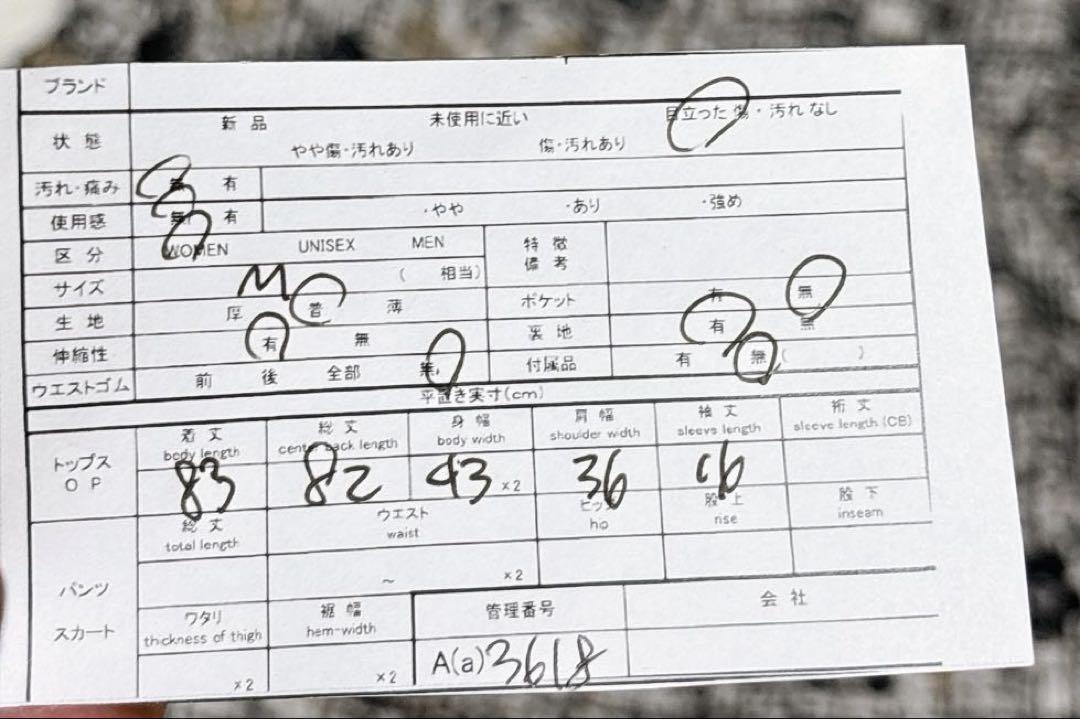 ブランド
状態 新品 未使用に近い 目立った傷・汚れなし
やや傷・汚れあり 傷・汚れあり
汚れ・痛み 無 有
使用感 無 有 ・やや ・あり ・強め
区分 WOMEN UNISEX MEN 特徴 備考
サイズ M ( 相当)
生地 厚 普 薄 ポケット 有 無
伸縮性 有 無 裏地 有 無
ウエストゴム 前 後 全部 無 付属品 有 無 ( )
平置き実寸(cm)
トップス OP
着丈 総丈 身幅 肩幅 袖丈 裄丈
body length center back length body width shoulder width sleeve length sleeve length (CB)
83 82 43 ×2 36 16
総丈 ウエスト ヒップ 股上 股下
total length waist hip rise inseam
パンツ スカート
~ ×2
ワタリ 裾幅 管理番号 会社
thickness of thigh hem-width
×2 ×2 A(a) 3618